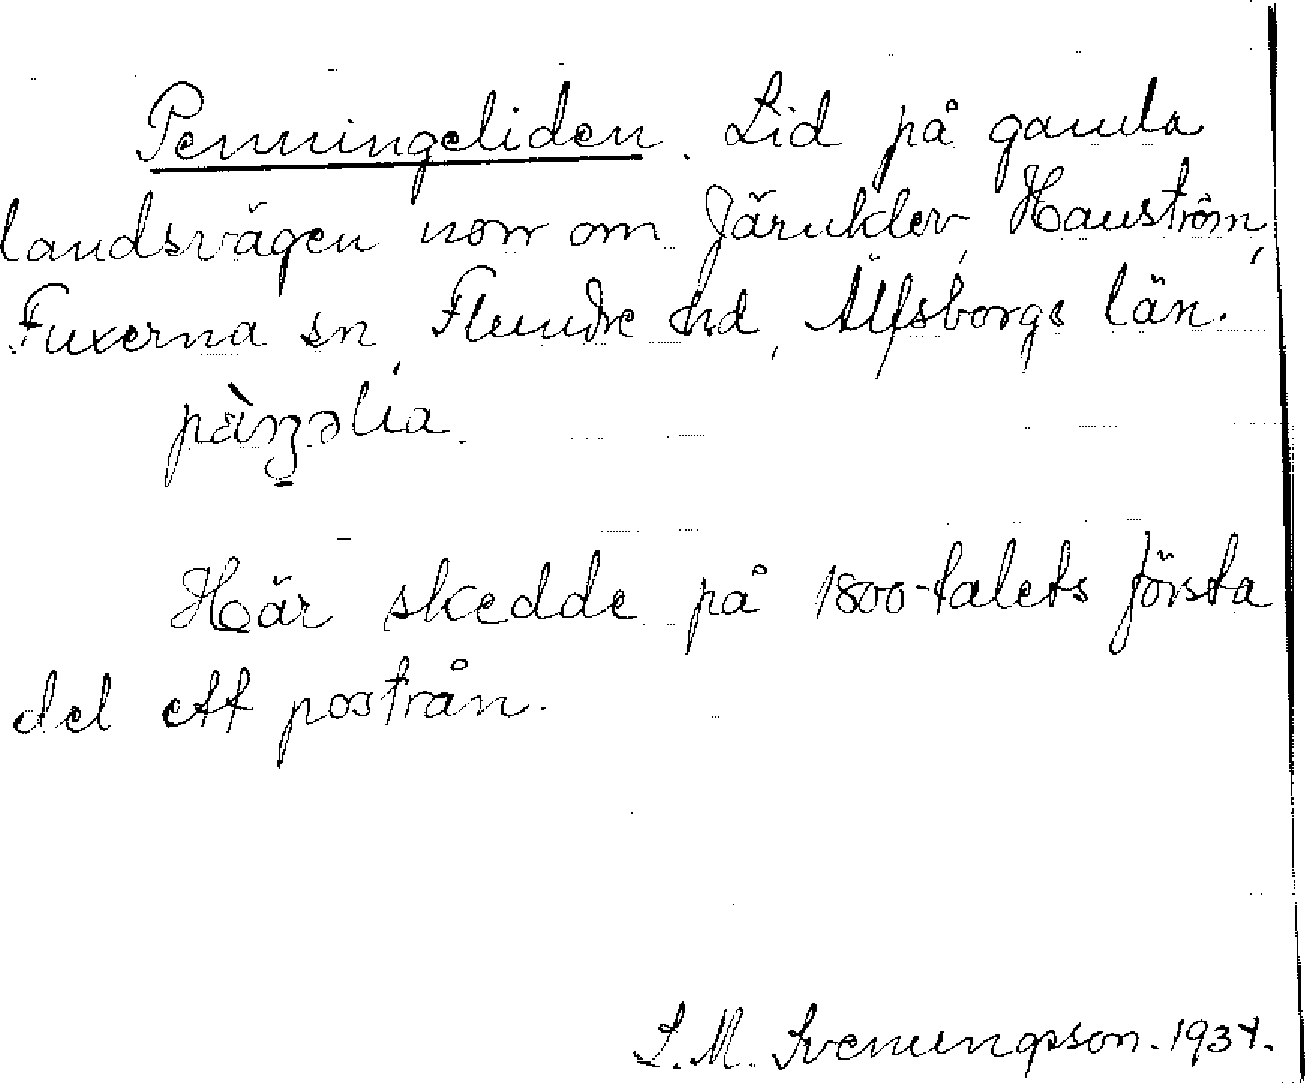 Penningeliden. Lid på gamla
landsvägen norr om Järnklev, Hanström,
Fuxerna sn, Flundre hd, Älfsborgs län.
pàŋəlia.
Här skedde på 1800-talets första
del ett postrån.
S. M. Svenungsson. 1934.